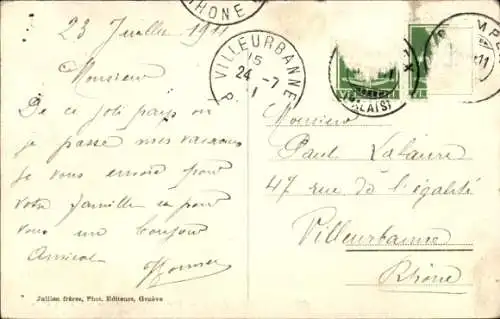 RHONE
23 Juillet 1911
Monsieur
De ce joli pays ou
je passe mes vacances
je vous envoie pour
votre famille et pour
vous un bonjour
Amical
VILLEURBANNE
15
24 - 7
11
R
(VALAIS)
MP
11
Monsieur
Paul
47 rue de l'égalité
Villeurbanne
Rhône
Jullien frères, Phot. Editeurs, Genève